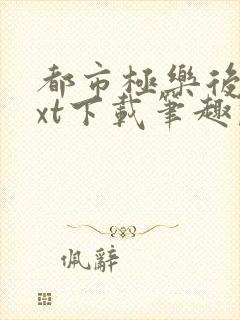 都市極樂後
xt下載筆趣
佩辭